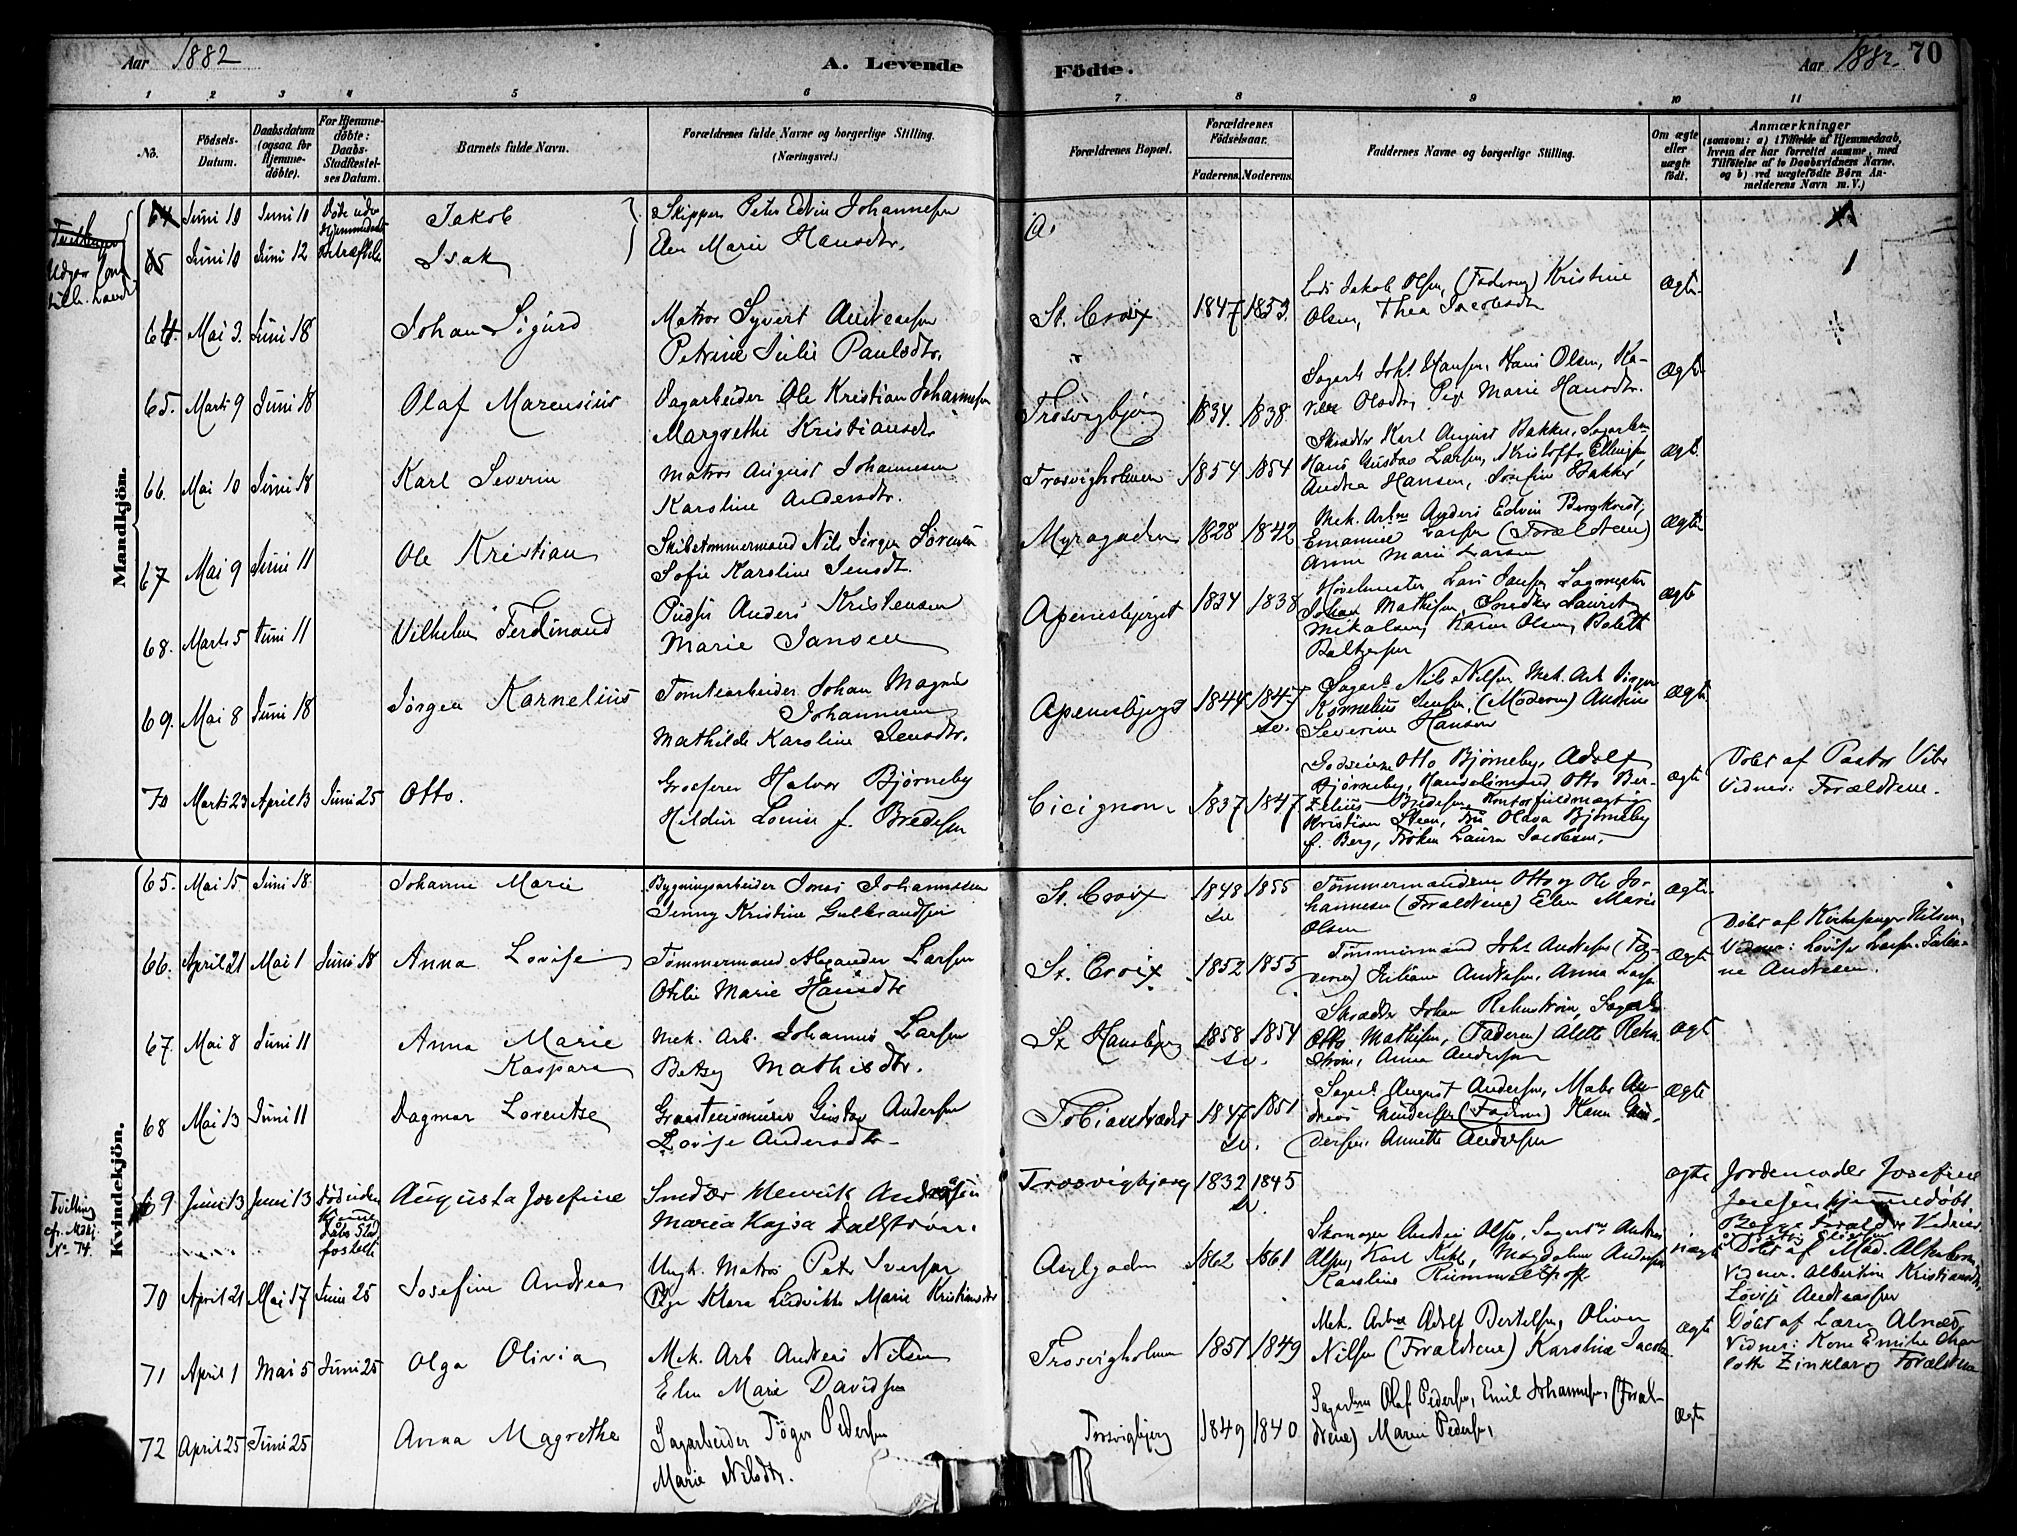 Aar 1882
A. Levende
Födte.
Aar 1882.
70
1 2 3 4 5 6 7 8 9 10 11
No.
Födsels-
Datum.
Daabsdatum
(ogsaa for
Hjemme-
döbte).
For Hjemme-
döbte:
Daabs-
Stadfæstel-
ses Datum.
Barnets fulde Navn.
Forældrenes fulde Navne og borgerlige Stilling.
(Næringsvei.)
Forældrenes Bopæl.
Forældrenes
Födselsaar.
Faderens. Moderens.
Faddernes Navne og borgerlige Stilling.
Om ægte
eller
uægte
födt.
Anmærkninger
(saasom: a) i Tilfælde af Hjemmedaab,
hvem der har forrettet samme, med
Tilföielse af to Daabsvidners Navne,
og b) ved uægtefödte Börn An-
melderens Navn m. V.)
Mandkjön.
64 Juni 10 Juni 10 Jakob Skipper Peter Edvin Johannesen
65 Juni 10 Juni 12 Isak Marie Hansdtr.
64. Mai 3. Juni 18 Johan Sigurd Matros Syvert Andreasen
Petrine Julie Paulsdtr.
St. Croix 1847 1853 Jakob Olsen, (Faderen) Kristine
Olsen, Thea Jacobsdtr Ægte
65. Marts 9 Juni 18 Olaf Marensius Sagarbeider Ole Kristian Johannesen
Margrethe Kristiansdtr
Trosvigbjerg 1834. 1838 Sagarb Joh. Hansen, Hans Olsen, Ka-
Olsdtr, Pige Marie Hansdtr. Ægte
66. Mai 10 Juni 18 Karl Severin Matros August Johannesen
Karoline Andersdtr.
Trosvigholmen 1854 1854 Skrædder Karl August Bakke,
Hans Gustav Larsen, Kristoffer Ellingsen
Andrea Hansen, Josefine Bakke Ægte
67 Mai 9 Juni 11 Ole Kristian Skibstømmermand Nils Jørgen Sørensen
Sofie Karoline Jensdt.
Myragaden 1828 1842 Mek. Arbne Anders Edvin Bergkvist,
Emanuel Larsen (Forældrene)
Anne Marie Larsen Ægte
68. Marts 5 Juni 11 Vilhelm Ferdinand Pudser Anders Kristensen
Marie Jansen
Apenesbjerget 1834 1838 Høvelmester Lars Jansen, Sagmester
Johan Mathisen, Snedker Laurets
Mikalsen, Karen Olsen, Bolette
Baltzersen Ægte
69. Mai 8 Juni 18 Jørgen Kornelius Tomtearbeider Johan Magnus
Johannesen
Mathilde Karoline Jensdtr.
Apenesbjerget 1844 1847
sv.
Sagarb Nils Nilsen, Mek. Arb Jørgen
Kornelius Jensen, (Moderen) Andrine
Severine Hansen Ægte
70 Marts 23 April 13 Juni 25 Otto. Grosserer Halvor Bjørneby
Hilda Louise f. Bredesen
Cicignon 1837 1847 Godseier Otto Bjørneby, Adolf
Bjørneby, Handelsmand Otto Ber-
zelius Bredesen, Kontorfuldmægtig
Kristian Steen, Fru Olava Bjørneby
f. Berg, Frøken Laura Jacobsen. Ægte
Døbt af Pastor Vibe
Vidner: Forældrene.
Kvindekjön.
65. Mai 15 Juni 18 Johanne Marie Bygningsarbeider Jonas Johannesen
Jenny Kristine Gulbrandsen
St. Croix 1848 1855
sv
Tømmermændene Otto og Ole Jo-
hannesen (Forældrene) Elen Marie
Olsen Ægte
66. April 21 Mai 1 Juni 18 Anna Lovise Tømmermand Alexander Larsen
Otilie Marie Hansdtr
St. Croix 1852 1855 Tømmermand Joh. Andresen (Fa-
deren) Juliane Andresen, Anna Larsen Ægte
Døbt af Kirkesanger Nilsen,
Vidner: Lovise Larsen. Julia-
ne Andresen.
67. Mai 8 Juni 11 Anna Marie
Kaspara Mek. Arb. Johannes Larsen
Betsy Mathisdtr.
St Hansbjerg 1858 1854
sv.
Skrædder Johan Rehnstrøm, Sagarb
Otto Mathisen, (Faderen) Alette Rehn-
strøm, Anna Andersen Ægte
68 Mai 13 Juni 11 Dagmar Lorentze Graastensmurer Gustav Andersen
Lovise Andersdtr
1847 1851
sv.
Sagarb August Andersen, Maler An-
dreas Gundersen (Faderen) Karen Gun-
dersen. Annette Andersen Ægte
Tvilling
cfr. Mkj.
No 74.
69 Juni 13 Juni 13 Død uden
Hjemme
Daabs Stad
fæstelse
Augusta Josefine Smed Henrik Andersen
Maria Kajsa Dalstrøm.
Trosvigbjerg 1832 1845
sv.
ægte Jordemoder Josefine
Jensen hjemmedøbt.
Begge Forældre Vidner
70 April 21 Mai 17 Juni 25 Josefine Andrea Ungk. Matros Peter Iversen
Pige Klara Ludvikke Marie Kristiansdtr
Asylgaden 1862 1861 Skomager Andreas Olsen, Sagarbne Andreas
Olsen, Karl Kihl, Magdalene Andersen
Karoline uægte
Døbt af Mad.
Vidner. Albertine Kristiansdtr,
Lovise Andreassen
71 April 1 Mai 5 Juni 25 Olga Olivia Mek. Arb Andreas Nilsen
Elen Marie Davidsen
Trosvigholmen 1851 1849 Mek. Arbne Adolf Bertelsen, Oliver
Nilsen (Forældrene) Karoline Jacobs. Ægte
Døbt af Lærer Alnæs,
Vidner: Kone Emilie Char-
lotte Zinklar og Forældrene
72 April 25 Juni 25 Anna Magrethe Sagarbeider Tøger Pedersen
Marie Nilsdtr.
Trosvigbjerg 1849 1840 Sagarbne Olaf Pedersen, Emil Johannesen, (Foræl-
drene) Maren Pedersen, Ægte